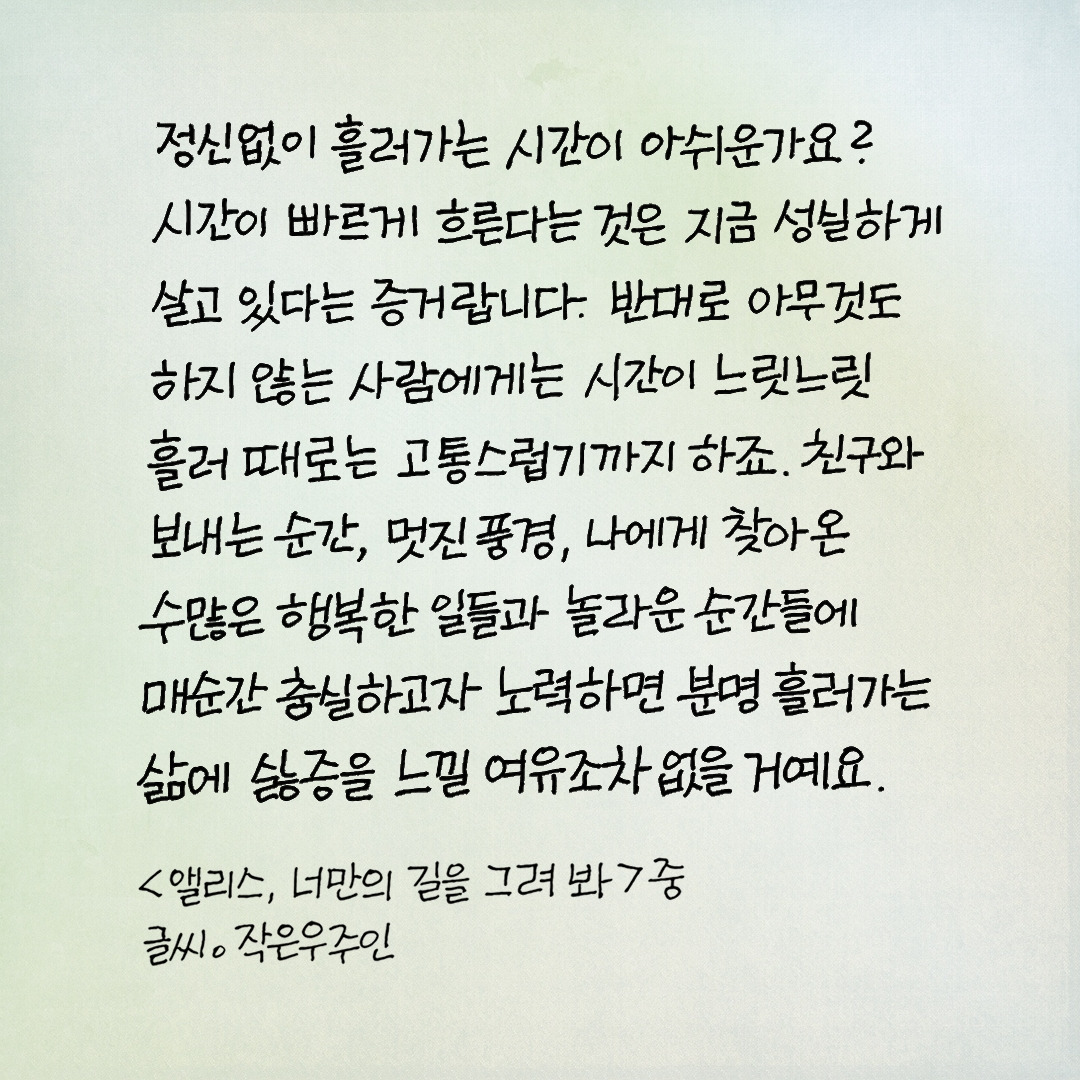 정신없이 흘러가는 시간이 아쉬운가요?
시간이 빠르게 흐른다는 것은 지금 성실하게
살고 있다는 증거랍니다. 반대로 아무것도
하지 않는 사람에게는 시간이 느릿느릿
흘러 때로는 고통스럽기까지 하죠. 친구와
보내는 순간, 멋진 풍경, 나에게 찾아온
수많은 행복한 일들과 놀라운 순간들에
매순간 충실하고자 노력하면 분명 흘러가는
삶에 싫증을 느낄 여유조차 없을 거예요.
<앨리스, 너만의 길을 그려 봐>중
글씨。작은우주인